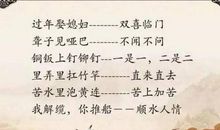 过年娶媳妇--------双喜临门
聋子见哑巴--------不闻不问
铜钣上钉铆钉----一是一，二是二
里弄里扛竹竿------直来直去
苦水里泡黄连------苦上加苦
我解缆，你推船－－顺水人情